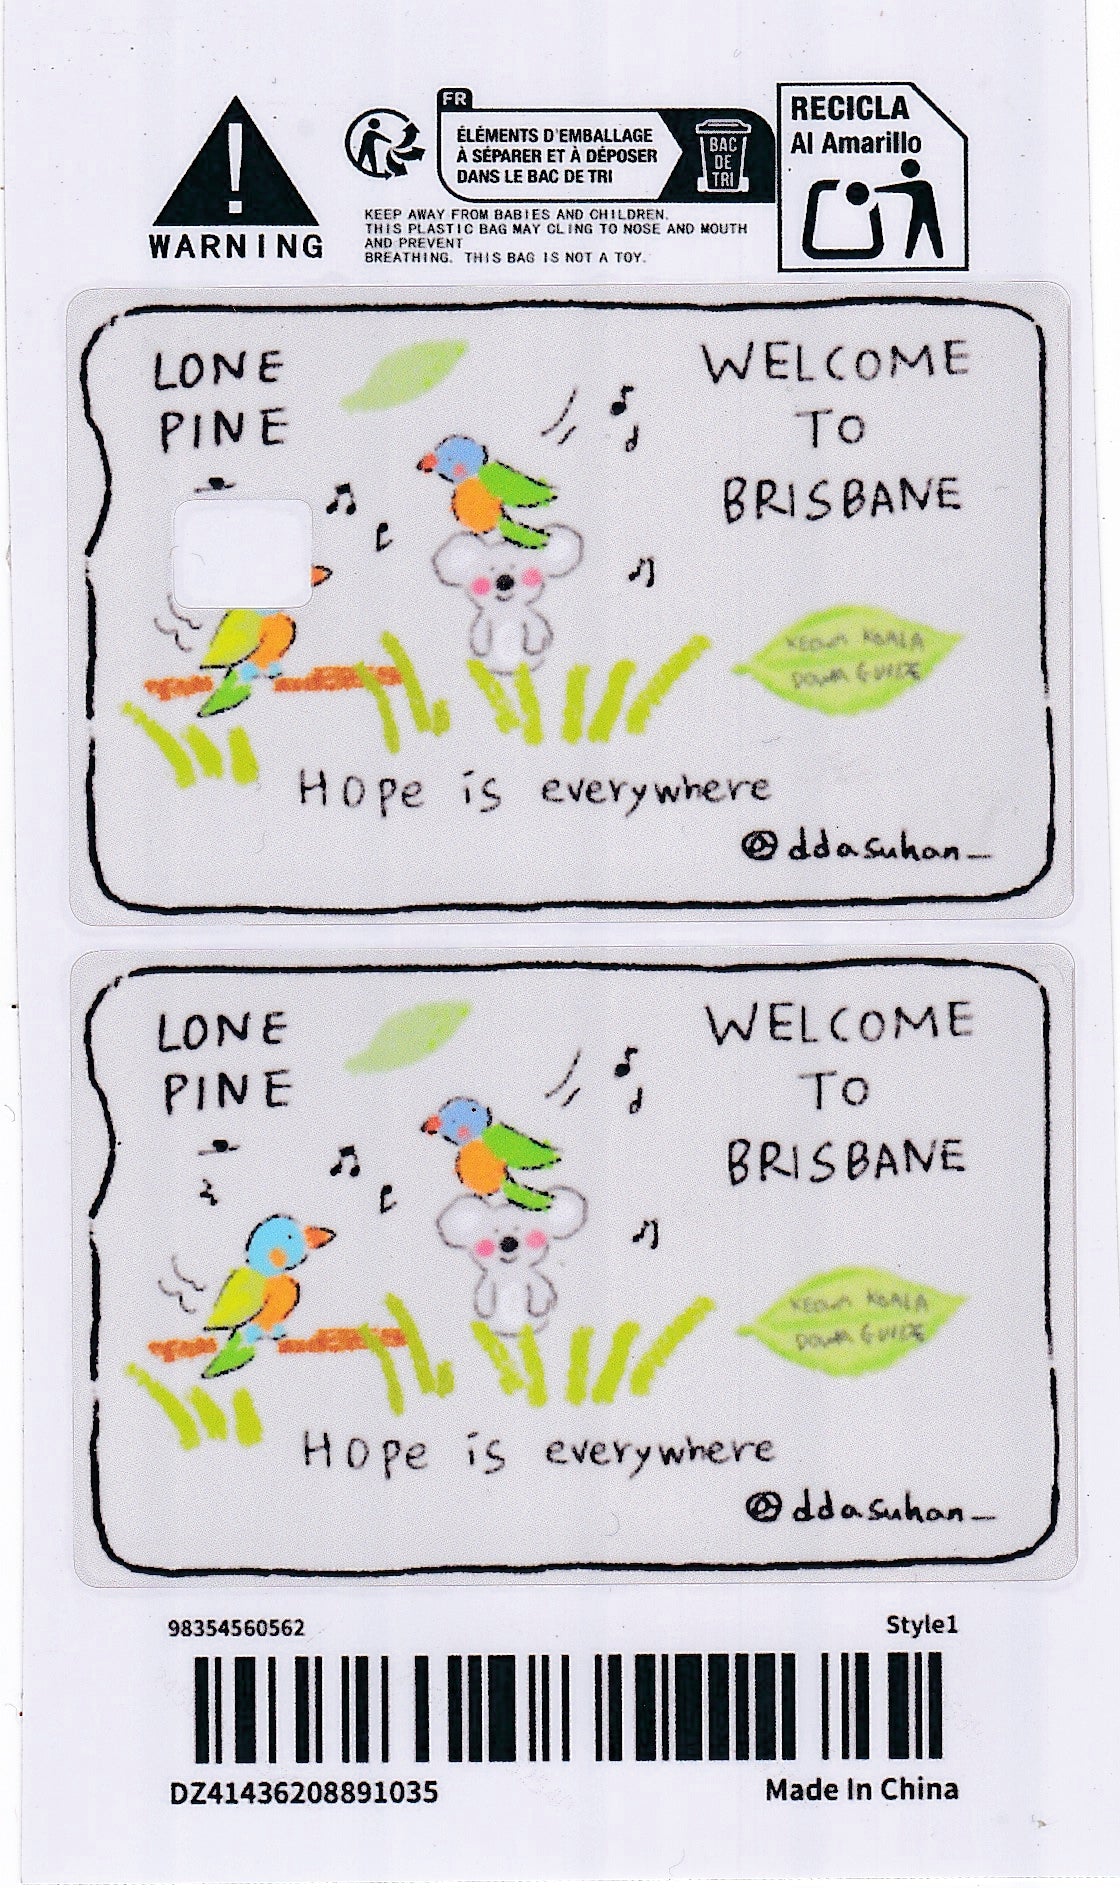 WARNING
FR
ÉLÉMENTS D'EMBALLAGE
À SÉPARER ET À DÉPOSER
DANS LE BAC DE TRI
BAC
DE
TRI
KEEP AWAY FROM BABIES AND CHILDREN.
THIS PLASTIC BAG MAY CLING TO NOSE AND MOUTH
AND PREVENT
BREATHING. THIS BAG IS NOT A TOY.
RECICLA
Al Amarillo
LONE
PINE
WELCOME
TO
BRISBANE
KOALA
GUIDE
Hope is everywhere
@ddasuhan_
LONE
PINE
WELCOME
TO
BRISBANE
KOALA
GUIDE
Hope is everywhere
@ddasuhan_
98354560562
Style1
DZ41436208891035
Made In China